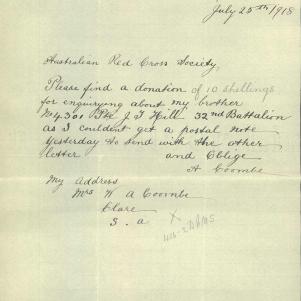 July 25th 1918
Australian Red Cross Society,
Please find a donation of 10 shellings
for enquirying about my brother
No 4301 Pte J T Hill 32nd Battalion
as I couldent get a postal note
yesterday to send with the other
letter and Oblige
A Coombe
My Address
Mrs W A Coombe
Clare
S. a
X